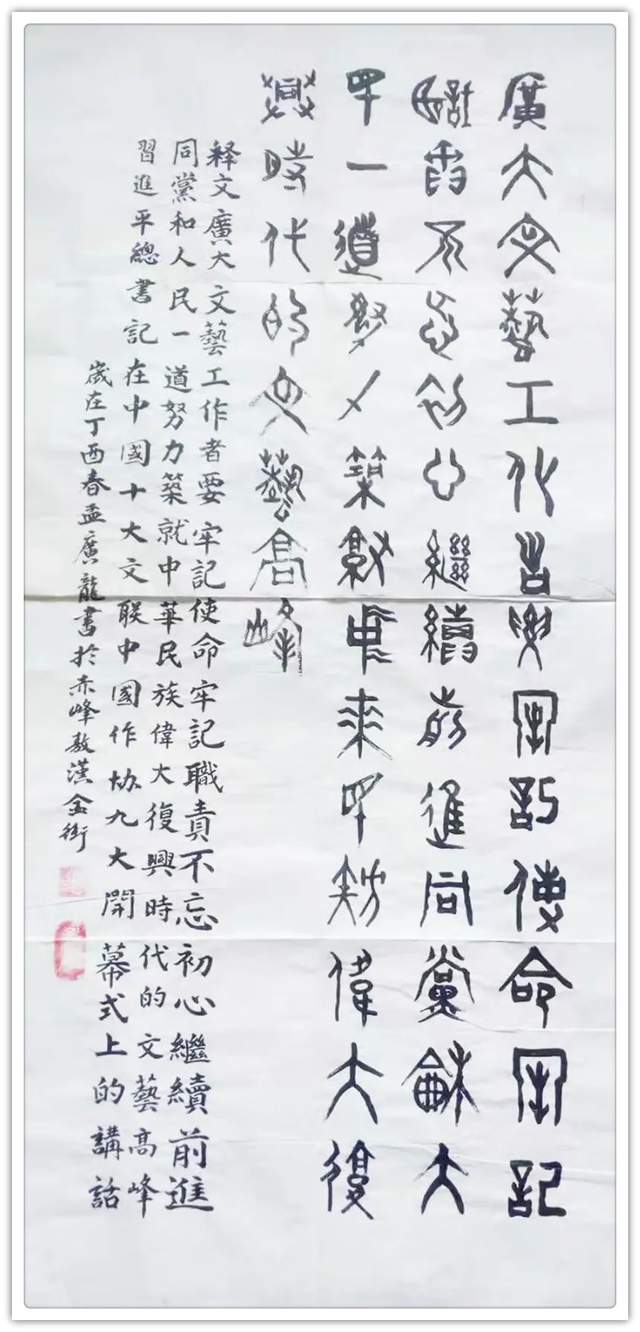 廣大文藝工作者要牢記使命牢記
職責不忘初心繼續前進同黨和人
民一道努力築就中華民族偉大復
興時代的文藝高峰
释文廣大文藝工作者要牢記使命牢記職責不忘初心繼續前進
同黨和人民一道努力築就中華民族偉大復興時代的文藝高峰
習進平總書記在中國十大文联中國作协九大開幕式上的講話
歲在丁酉春孟廣龍書於赤峰敖漢金街